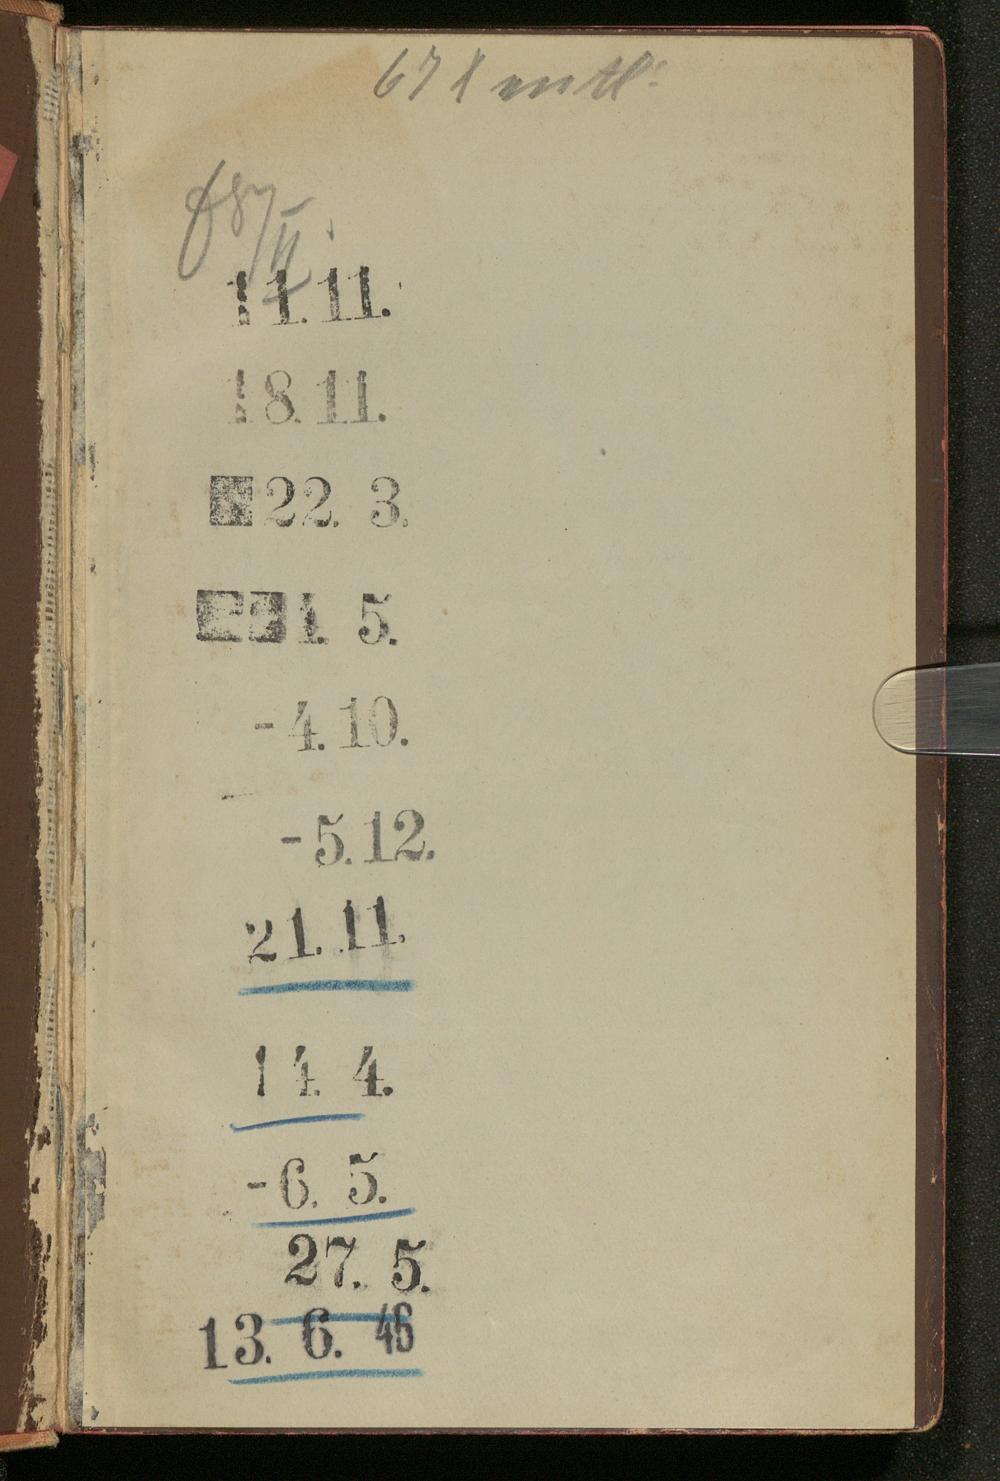 67 x entl:
14.11.
18.11.
22. 3.
1. 5.
-4.10.
-5.12.
21.11.
14. 4.
-6. 5.
27. 5.
13. 6. 46